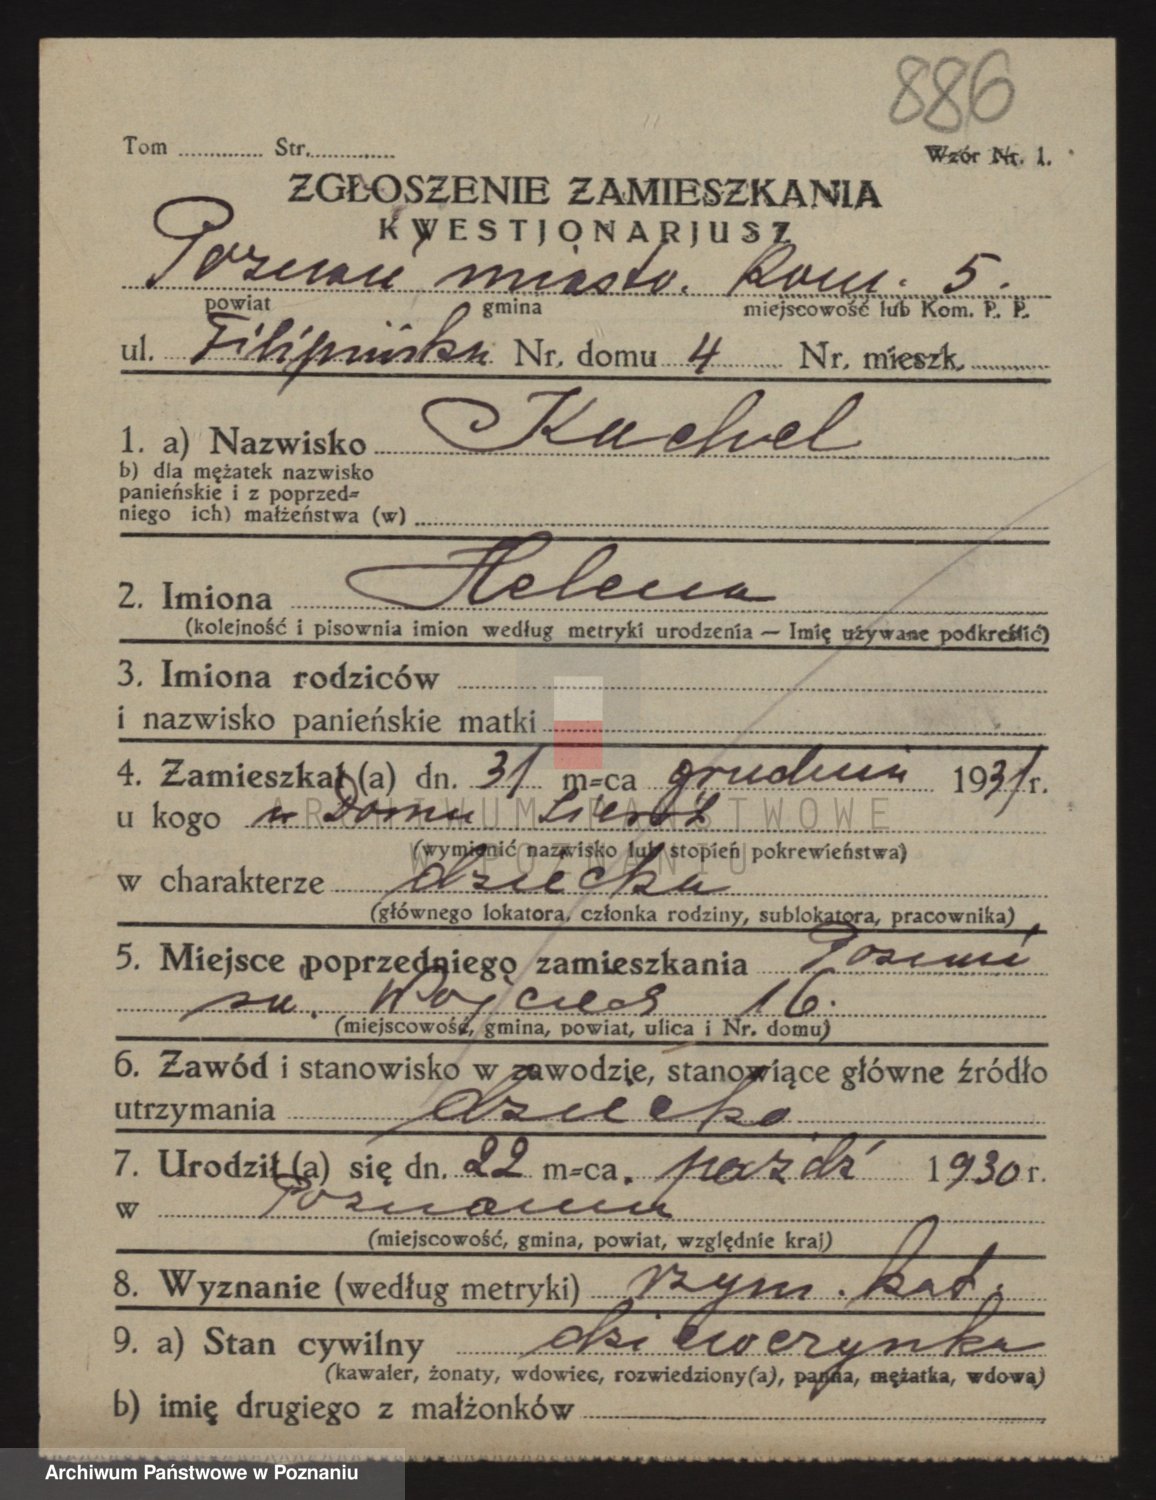 886
Tom ............ Str. ............
Wzór Nr. 1.
ZGŁOSZENIE ZAMIESZKANIA
KWESTJONARJUSZ
Poznań miasto. Kom. 5.
powiat gmina miejscowość lub Kom. P. P.
ul. Filipińska Nr. domu 4 Nr. mieszk. ............
1. a) Nazwisko Kachel
b) dla mężatek nazwisko
panieńskie i z poprzed=
niego ich) małżeństwa (w) ............
2. Imiona Helena
(kolejność i pisownia imion według metryki urodzenia — Imię używane podkreślić)
3. Imiona rodziców ............
i nazwisko panieńskie matki ............
4. Zamieszkał (a) dn. 31 m=ca grudnia 1931 r.
u kogo w Domu Sierot
ARCHIWUM PAŃSTWOWE
W POZNANIU
(wymienić nazwisko lub stopień pokrewieństwa)
w charakterze dziecka
(głównego lokatora, członka rodziny, sublokatora, pracownika)
5. Miejsce poprzedniego zamieszkania Poznań
św. Wojciech 16.
(miejscowość, gmina, powiat, ulica i Nr. domu)
6. Zawód i stanowisko w zawodzie, stanowiące główne źródło
utrzymania dziecko
7. Urodził (a) się dn. 22 m=ca. paźdź 1930 r.
w Poznaniu
(miejscowość, gmina, powiat, względnie kraj)
8. Wyznanie (według metryki) rzym. kat.
9. a) Stan cywilny dziewczynka
(kawaler, żonaty, wdowiec, rozwiedziony(a), panna, mężatka, wdowa)
b) imię drugiego z małżonków ............
Archiwum Państwowe w Poznaniu